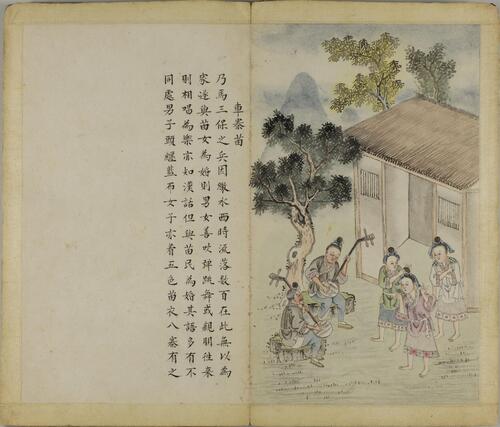 車寨苗
乃馬三保之兵因繳水西時流落數百在此無以為
家遂與苗女為婚則男女善吹彈跳舞或親朋往來
則相唱為樂亦知漢話但與苗民為婚其語多有不
同處男子頭纏藍布女子亦着五色苗衣八寨有之